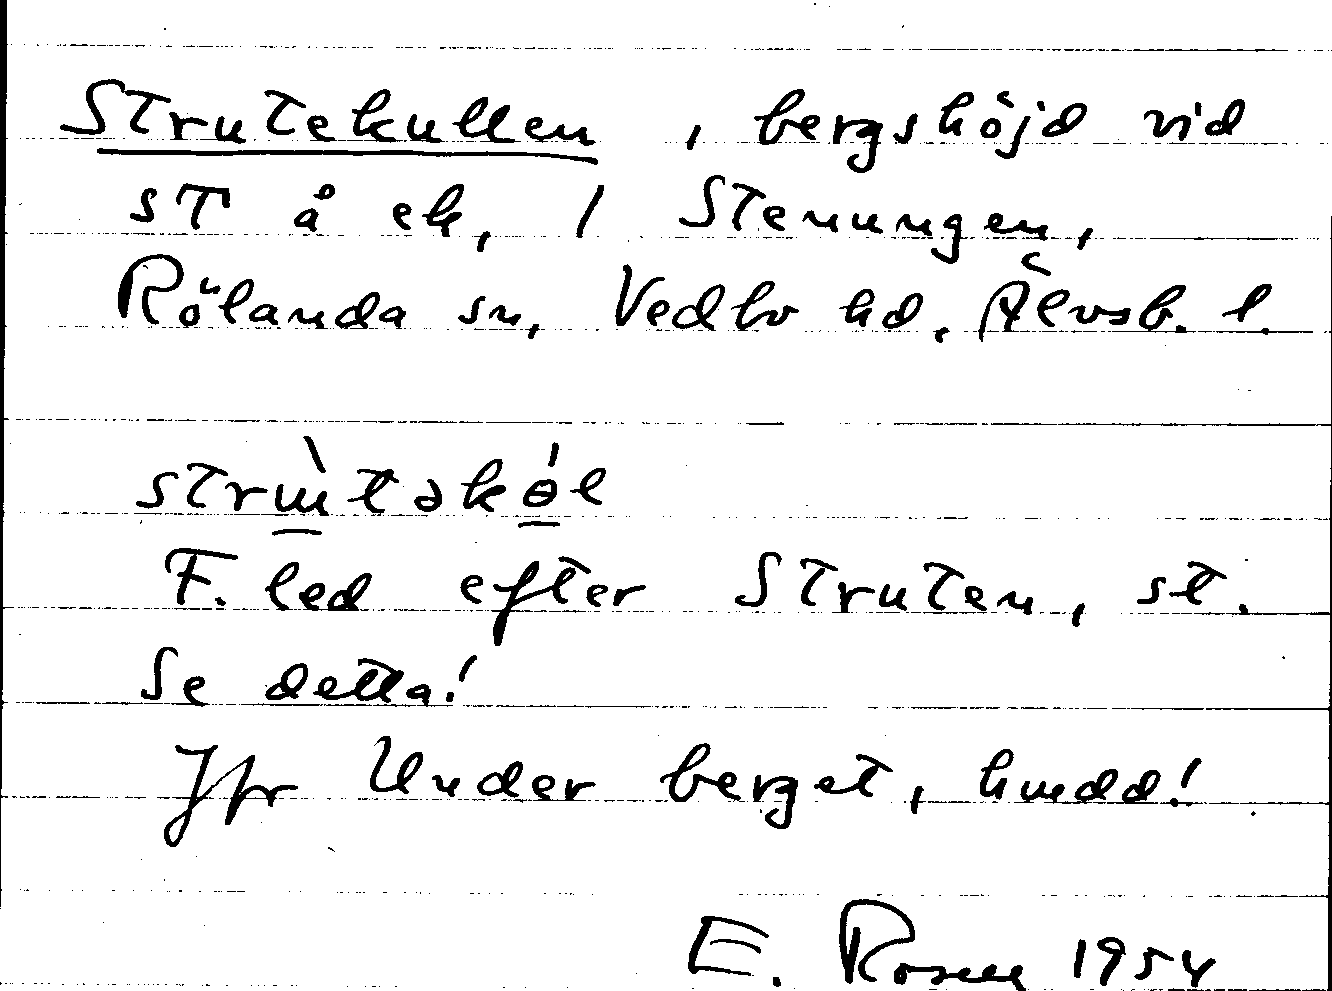 Strutekullen, bergshöjd vid
st å ek, 1 Stenungen,
Rölanda sn, Vedbo hd, Älvsb. l.
strù̱təkɵ̱́l
F. led efter Struten, st.
Se detta!
Jfr Under berget, hmdd!
E. Rosell 1954